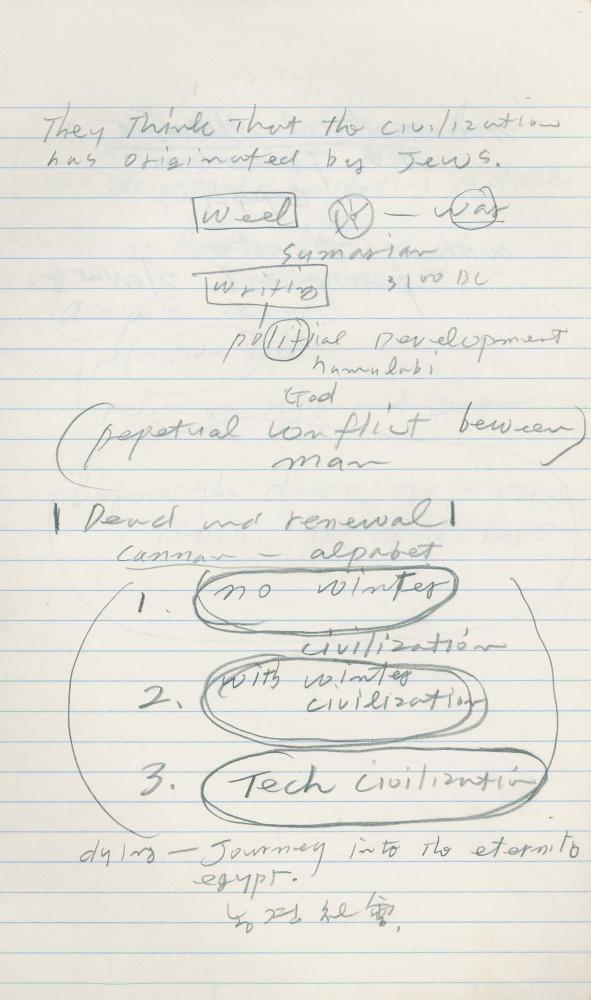 They Think That tho civilization
has originated by Jews.
Weel — war
Sumarian
writing 3100 BC
politial Development
hamulabi
God
(pepetual conflict beween)
man
Dead and renewal
Cannan — alpabet
1. no winter
civilization
2. with winter
civilization
3. Tech civilization
dying — Journey into tho eternity
egypt.
농경